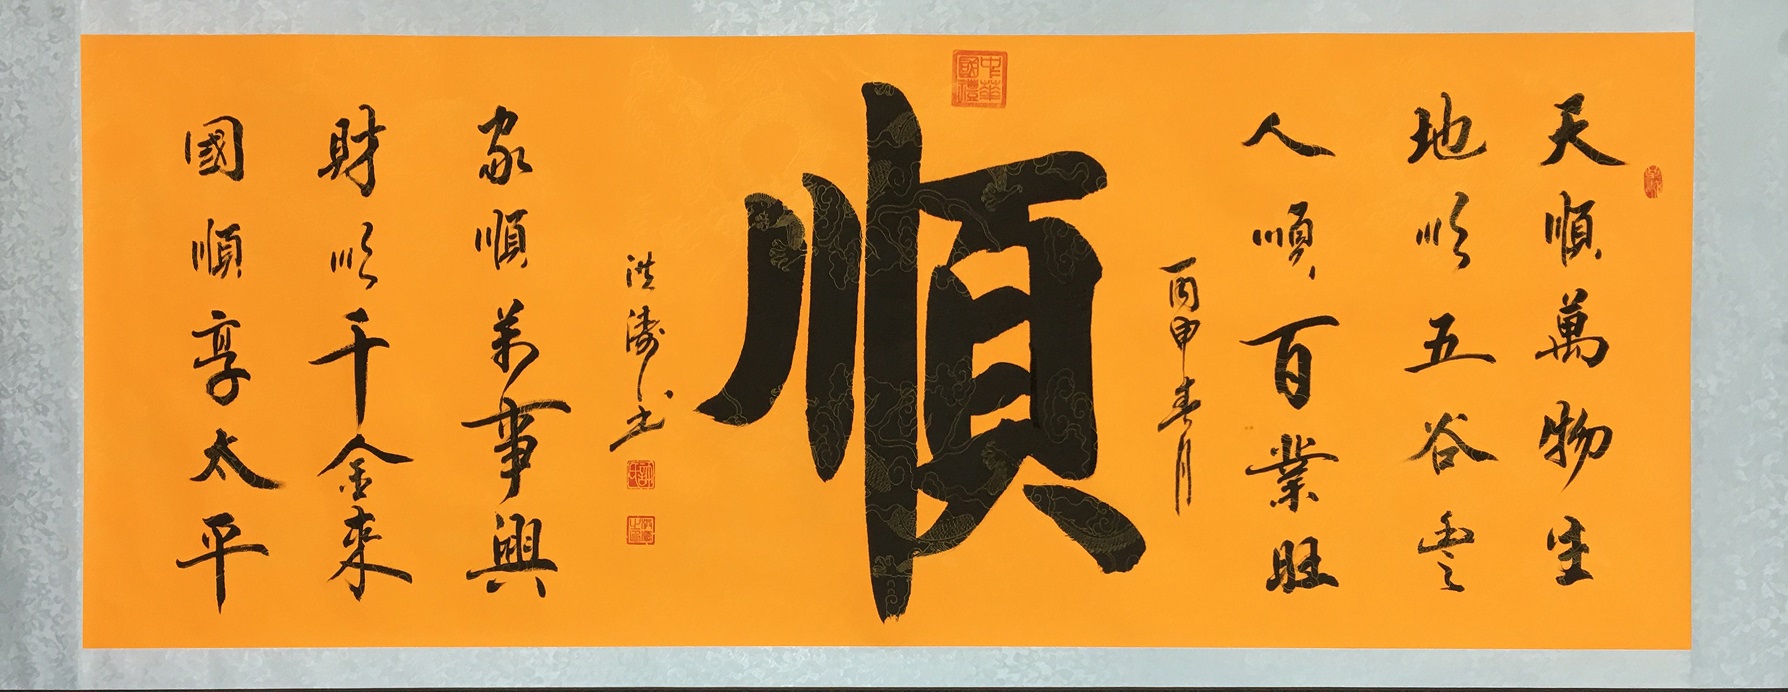 天順萬物生
地順五谷豐
人順百業旺
丙申春月
順
中華國禮
洪濤書
家順萬事興
財順千金來
國順享太平